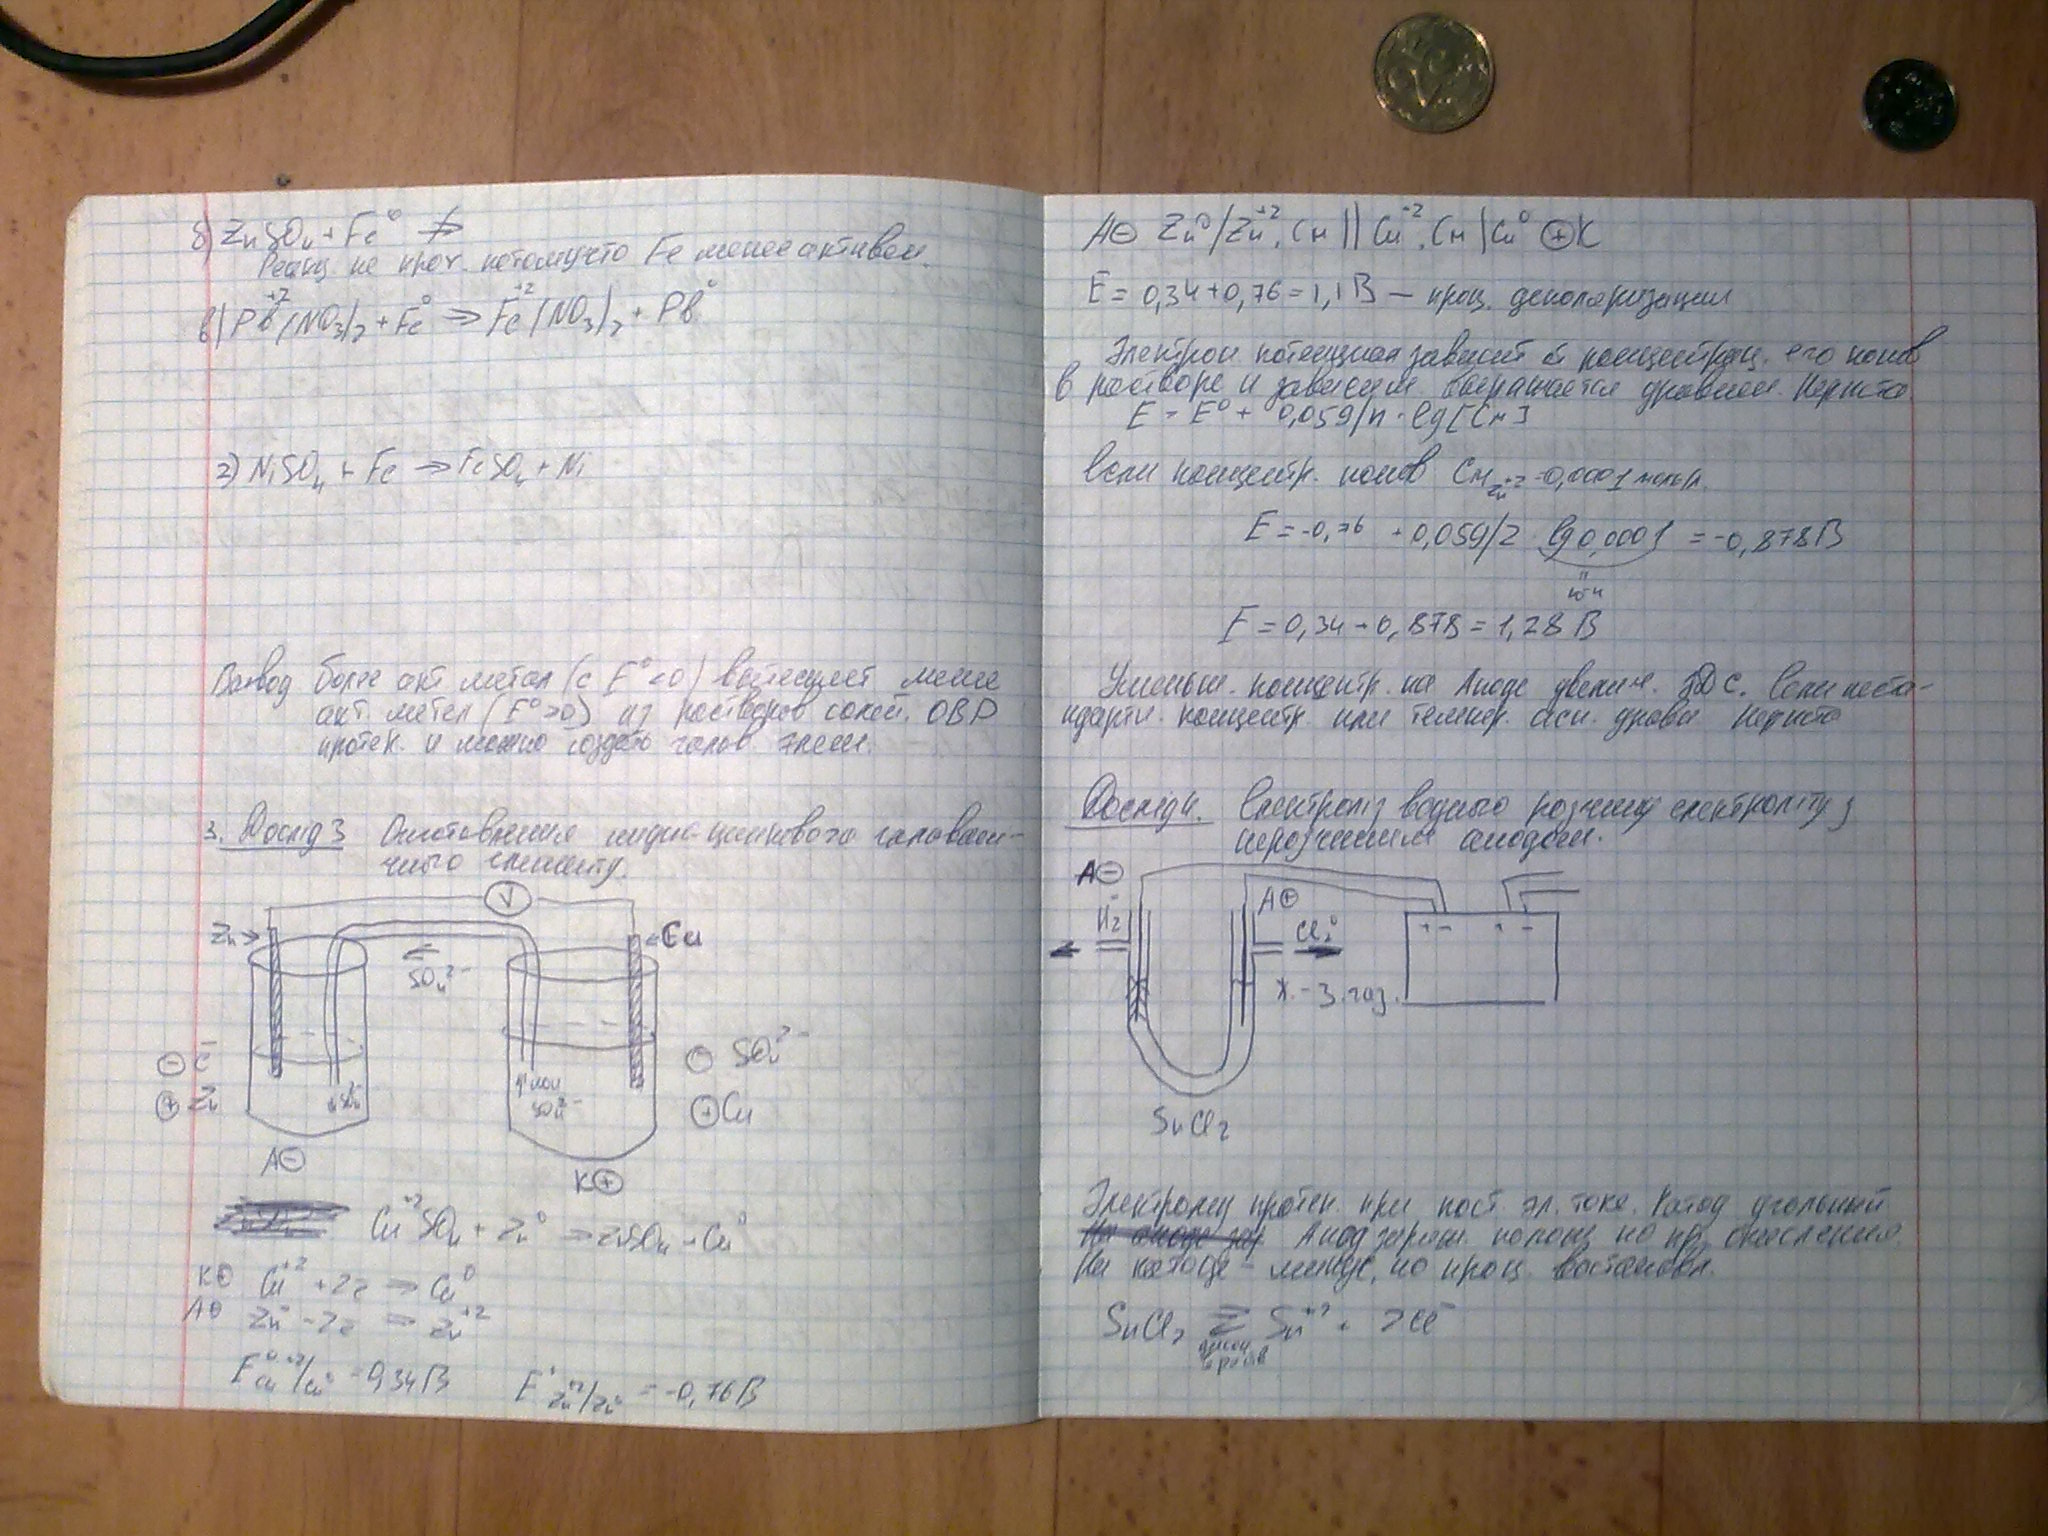 б) ZnSO₄ + Fe⁰ ⇏
Реакц. не прот. потому что Fe менее активен.
в) Pb⁺²(NO₃)₂ + Fe⁰ ⇒ Fe⁺²(NO₃)₂ + Pb⁰
г) NiSO₄ + Fe ⇒ FeSO₄ + Ni
Вывод более акт метал (с E⁰<0) вытесняет менее
акт. метал (E⁰>0) из растворов солей. ОВР
протек. и можно создать гальв. элем.
3. Дослід 3 Виготовлення мідно-цинкового гальвані-
чного елементу.
V
Zn
Cu
SO₄²⁻
⊖ e⁻
⊕ Zn
SO₄²⁻
SO₄²⁻
⊖ SO₄²⁻
⊕ Cu
A⊖
K⊕
Cu⁺²SO₄ + Zn⁰ ⇒ ZnSO₄ + Cu⁰
K⊕ Cu⁺² + 2e ⇒ Cu⁰
A⊖ Zn⁰ - 2e ⇒ Zn⁺²
E⁰ Cu⁺²/Cu⁰ = 0,34 В E⁰ Zn⁺²/Zn⁰ = -0,76 В
A⊖ Zn⁰/Zn⁺², Cм || Cu⁺², Cм | Cu⁰ ⊕K
E = 0,34 + 0,76 = 1,1 В — проц. деполяризации
Электрон потенциал зависит от концентрац. его ионов
в растворе и зависим. выражается уравнен. Нернста
E = E⁰ + 0,059/n · lg[Cм]
если концентр. ионов Cм Zn⁺² = 0,0001 моль/л.
E = -0,76 + 0,059/2 · lg 0,0001 = -0,878 В
E = 0,34 + 0,878 = 1,28 В
Уменьш. концентр. на Аноде увелич. ЭДС. Если неста-
ндартн. концентр. или темпер. исп. уравн Нернста
Дослід 4. Електроліз водного розчину електроліту з
нерозчинним анодом.
A⊖
H₂
A⊕
Cl₂⁰
ж.-з. газ.
+ - + -
SnCl₂
Электролиз протек. при пост. эл. токе. Катод угольный
Анод заряж. полож но пр. окисления.
На катоде - минус, но проц. востановл.
SnCl₂ ⇄ Sn⁺² + 2Cl⁻